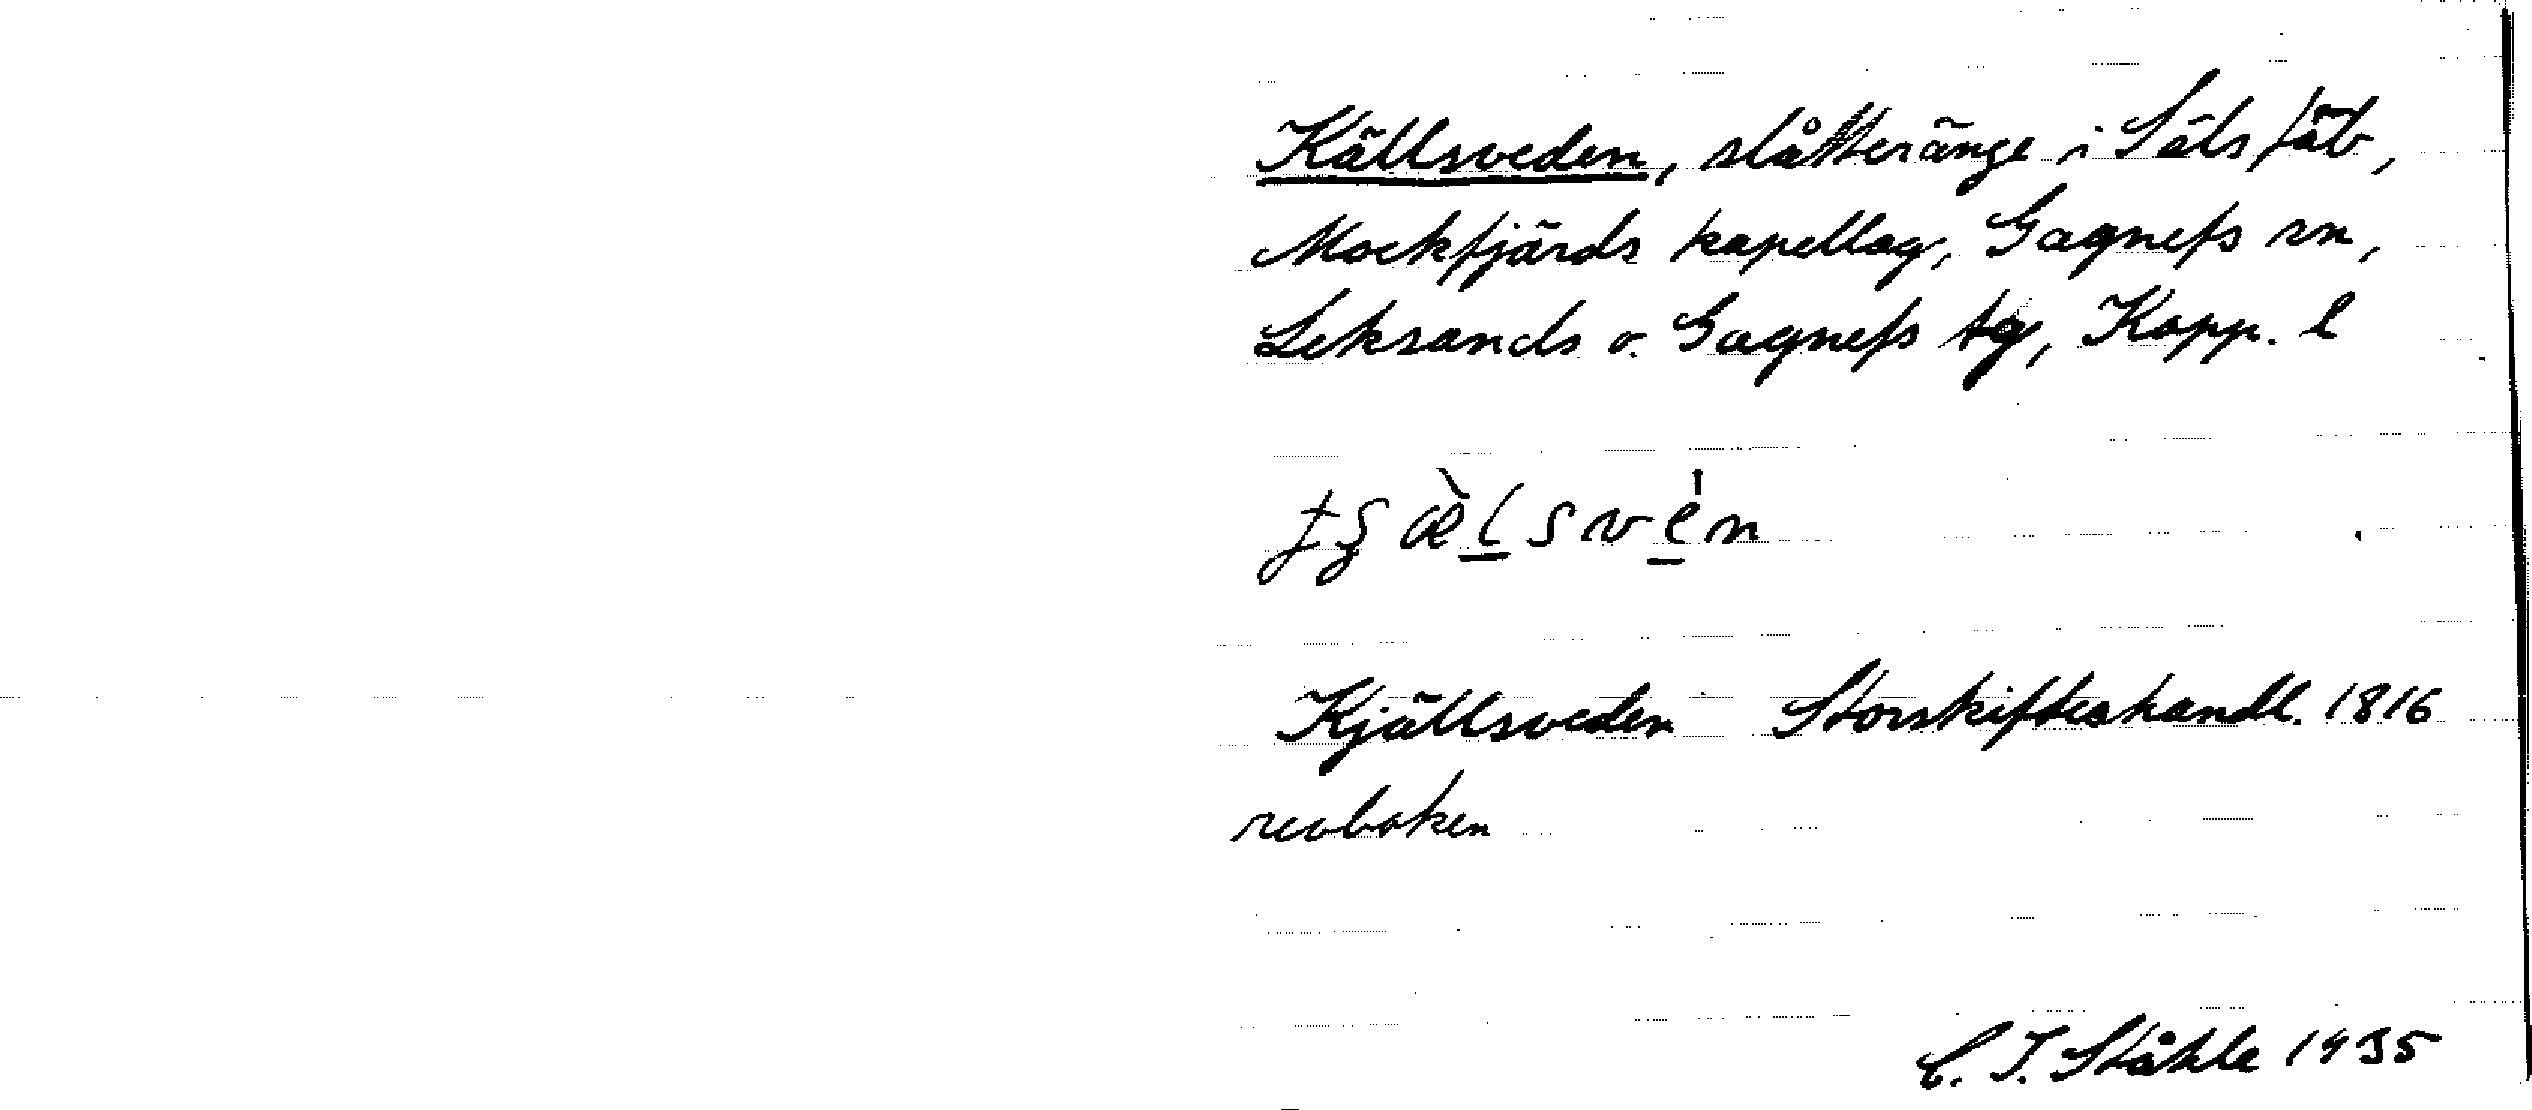 Källsveden, slåtteränge i Säls fäb,
Mockfjärds kapellag, Gagnefs sn,
Leksands o. Gagnefs tg, Kopp. l
Kjällsveden Storskifteshandl. 1816
revboken
C. I. Ståhle 1935